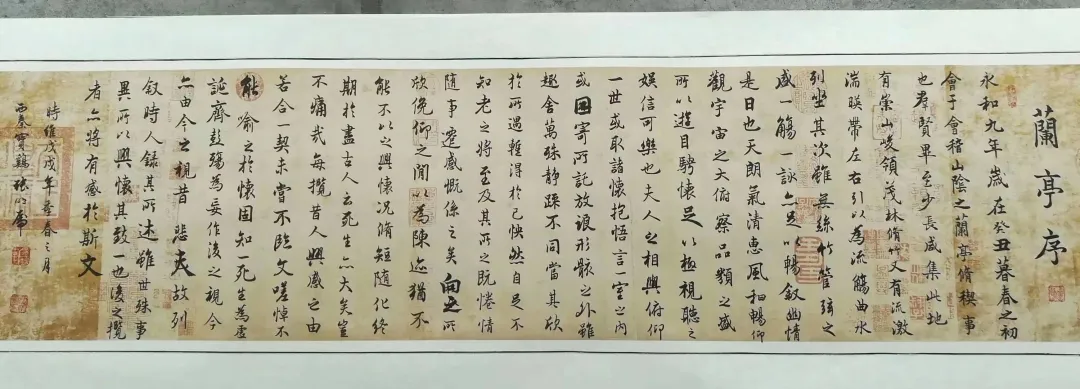 蘭亭序
永和九年歲在癸丑暮春之初
會于會稽山陰之蘭亭脩稧事
也羣賢畢至少長咸集此地
有崇山峻領茂林脩竹又有流激
湍暎帶左右引以為流觴曲水
列坐其次雖無絲竹管弦之
盛一觴一詠亦足以暢叙幽情
是日也天朗氣清惠風和暢仰
觀宇宙之大俯察品類之盛
所以遊目騁懷足以極視聽之
娛信可樂也夫人之相與俯仰
一世或取諸懷抱悟言一室之內
或因寄所託放浪形骸之外雖
趣舍萬殊静躁不同當其欣
於所遇輕得於己怏然自足不
知老之將至及其所之既惓情
隨事遷感慨係之矣向之所
欣俛仰之閒以為陳迹猶不
能不以之興懷況脩短隨化終
期於盡古人云死生亦大矣豈
不痛哉每攬昔人興感之由
若合一契未嘗不臨文嗟悼不
能喻之於懷固知一死生為虛
誕齊彭殤為妄作後之視今
亦由今之視昔悲夫故列
叙時人録其所述雖世殊事
異所以興懷其致一也後之攬
者亦將有感於斯文
時維戊戌年孟春之月
西秦寶鷄張